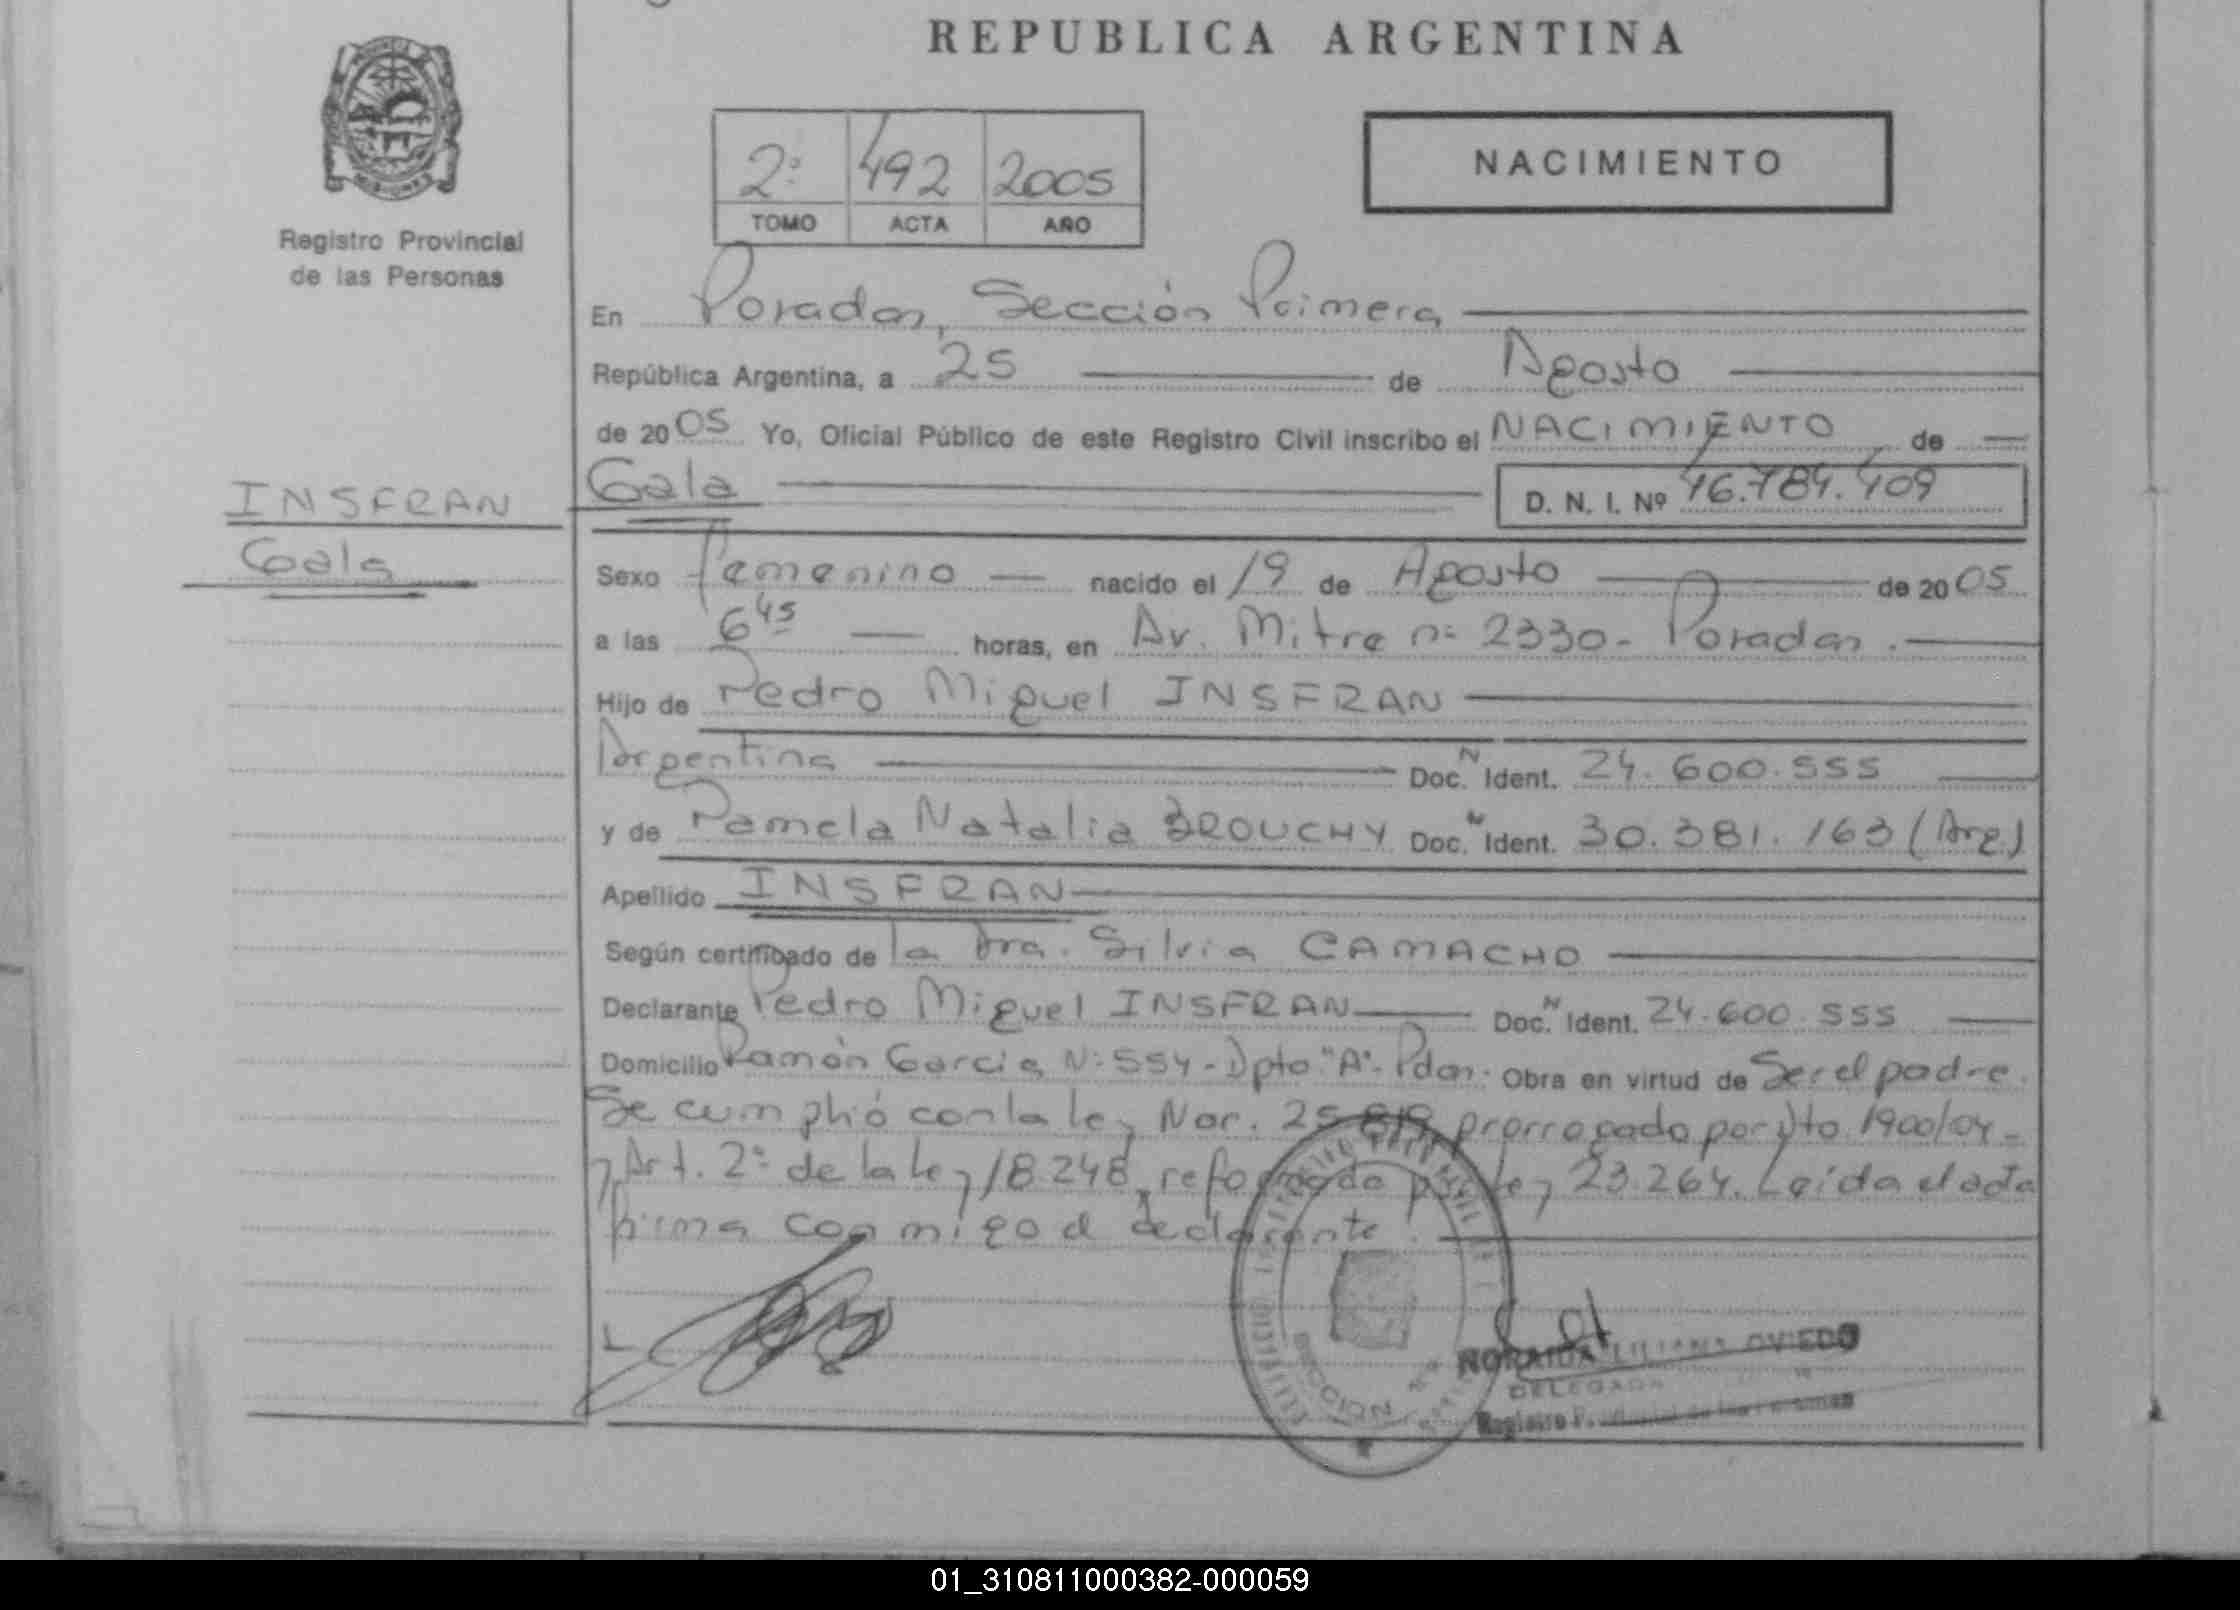 REPUBLICA ARGENTINA
MISIONES
Registro Provincial
de las Personas
2º 492 2005
TOMO ACTA AÑO
NACIMIENTO
En Posadas, Sección Primera
República Argentina, a 25 de Agosto
de 2005 Yo, Oficial Público de este Registro Civil inscribo el NACIMIENTO de
INSFRAN
Gala
Gala
D. N. I. Nº 46.784.409
Sexo Femenino nacido el 19 de Agosto de 2005
a las 6 45 horas, en Av. Mitre nº 2330 - Posadas.
Hijo de Pedro Miguel INSFRAN
Argentina Doc. N Ident. 24.600.555
y de Pamela Natalia BROUCHY Doc. N Ident. 30.381.163 (Arg)
Apellido INSFRAN
Según certificado de la Dra. Silvia CAMACHO
Declarante Pedro Miguel INSFRAN Doc. N Ident. 24.600.555
Domicilio Ramón García Nº 554 - Dpto "A" - Pdas. Obra en virtud de Ser el padre.
Se cumplió con la ley Nac. 25.819 prorrogado por Dto 1900/04 -
y Art. 2º de la Ley 18.248, reformado por ley 23.264. Leída el acta
firma conmigo el declarante.
NORAIDA LILIANA OVIEDO
DELEGADA
Registro Provincial de las Personas
01_310811000382-000059